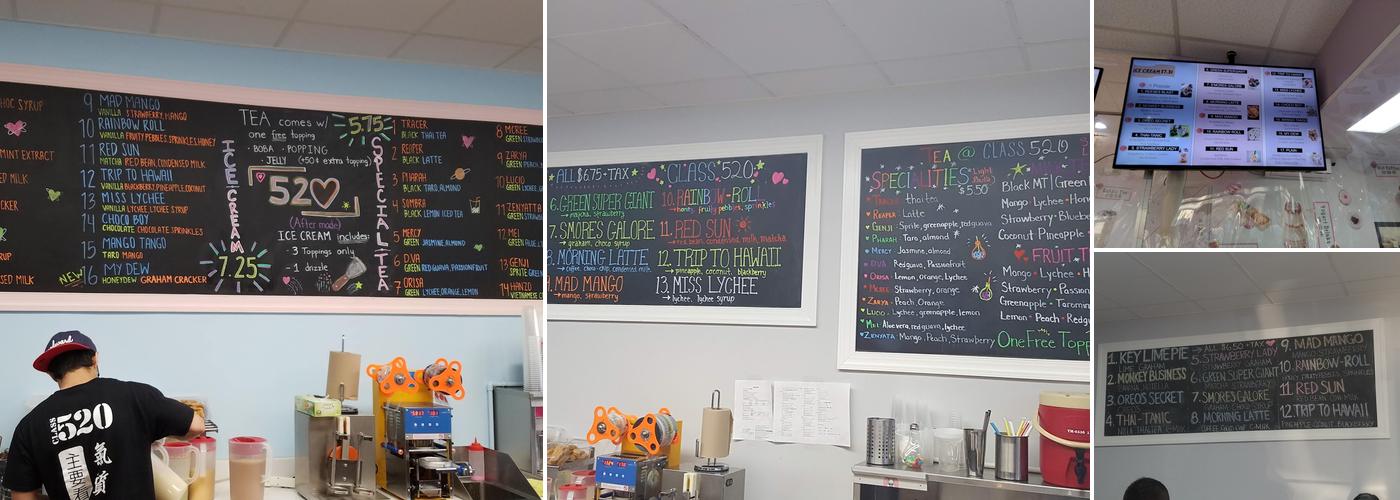 HOC SYRUP
MINT EXTRACT
ED MILK
CKER
RUP
SED MILK
9 MAD MANGO
VANILLA STRAWBERRY, MANGO
10 RAINBOW ROLL
VANILLA FRUITY PEBBLES, SPRINKLES, HONEY
11 RED SUN
MATCHA RED BEAN, CONDENSED MILK
12 TRIP TO HAWAII
VANILLA BLACKBERRY, PINEAPPLE, COCONUT
13 MISS LYCHEE
VANILLA LYCHEE, LYCHEE SYRUP
14 CHOCO BOY
CHOCOLATE CHOCOLATE, SPRINKLES
15 MANGO TANGO
TARO MANGO
NEW 16 MY DEW
HONEYDEW GRAHAM CRACKER
ICE CREAM
7.25
TEA comes w/
one free topping
· BOBA · POPPING
· JELLY (+50¢ extra topping)
5.75
520
(After mode)
ICE CREAM includes:
3 Toppings only
1 drizzle
SPECIAL TEA
1 TRACER
BLACK THAI TEA
2 REAPER
BLACK LATTE
3 PHARAH
BLACK TARO, ALMOND
4 SOMBRA
BLACK LEMON ICED TEA
5 MERCY
GREEN JASMINE, ALMOND
6 D.VA
GREEN RED GUAVA, PASSIONFRUIT
7 ORISA
GREEN LYCHEE, ORANGE, LEMON
8 MCREE
GREEN
9 ZARYA
GREEN
10 LUCIO
GREEN
11 ZENYATTA
12 MEI
GREEN
13 GENJI
SPRITE
14 HANZO
VIETNAMESE
CLASS
520
主要看
氣質
ALL $6.75+TAX
CLASS 520
6. GREEN SUPER GIANT
matcha, strawberry
7. SMORES GALORE
graham, choco syrup
8. MORNING LATTE
coffee, choco-chip, condensed milk
9. MAD MANGO
mango, strawberry
10. RAINBOW-ROLL
honey, fruity pebbles, sprinkles
11. RED SUN
red bean, condensed milk, matcha
12. TRIP TO HAWAII
pineapple, coconut, blackberry
13. MISS LYCHEE
lychee, lychee syrup
TEA @ CLASS 520
SPECIALITIES
$5.50
Tracer thai tea
Reaper - Latte
Genji - Sprite, greenapple, redguava
Pharah - Taro, almond
Mercy - Jasmine, almond
D.Va - Redguava, Passionfruit
Orisa - Lemon, orange, lychee
Mcree - Strawberry, orange
Zarya - Peach, Orange
Lucio - Lychee, greenapple, lemon
Mei - Aloe vera, redguava, lychee
Zenyatta - Mango, Peach, Strawberry
Black MT | Green
Mango · Lychee · Hon
Strawberry · Blueb
Coconut Pineapple
FRUIT T
Mango · Lychee · H
Strawberry · Passion
Greenapple · Taromin
Lemon · Peach · Redgu
One Free Topp
ICE CREAM $7.31
1. KEY LIME PIE
2. MONKEY BUSINESS
3. OREOS SECRET
4. THAI-TANIC
ALL $6.50+TAX
5. STRAWBERRY LADY
6. GREEN SUPER GIANT
7. SMORES GALORE
8. MORNING LATTE
9. MAD MANGO
10. RAINBOW-ROLL
11. RED SUN
12. TRIP TO HAWAII